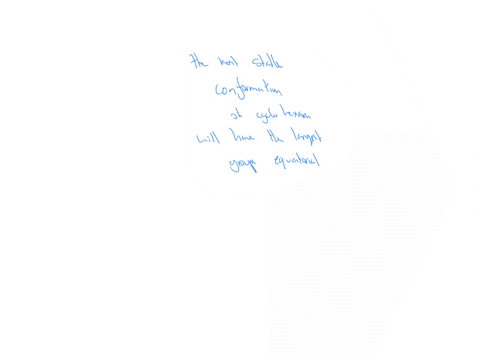 the most stable
conformation
of cyclohexane
will have the largest
groups equatorial